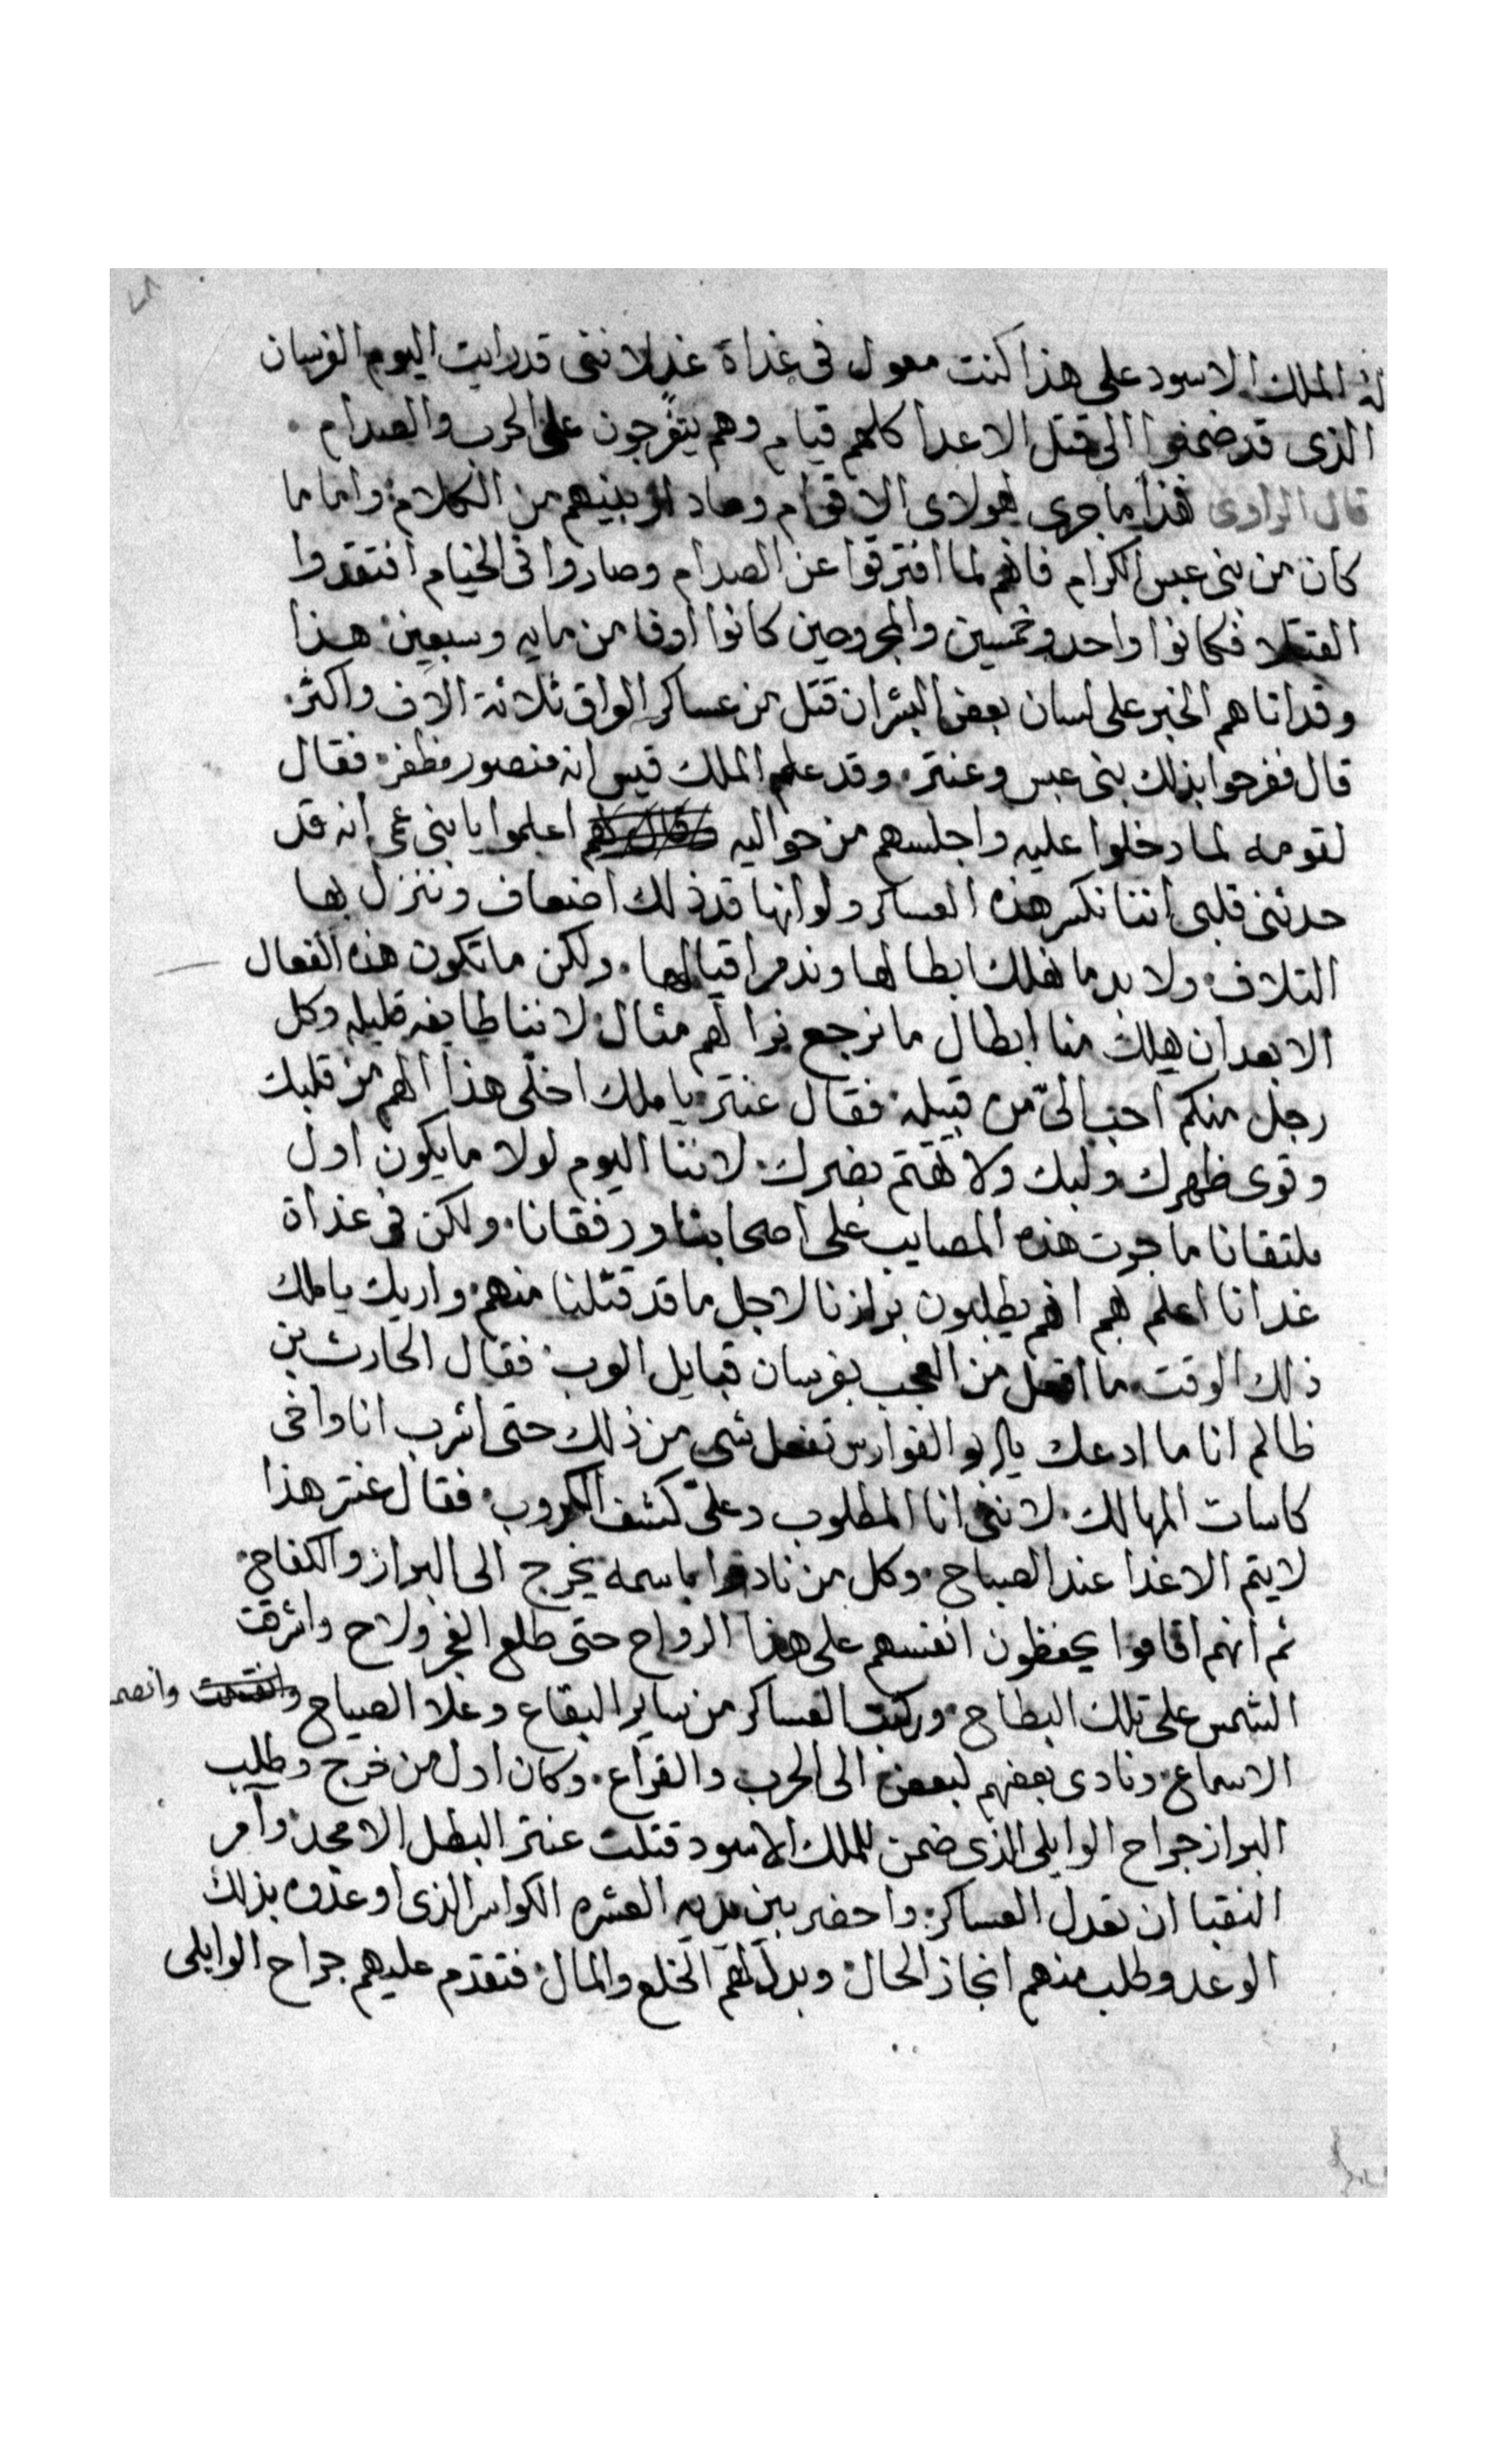 له الملك الاسود على هذا كنت معول فى غداة غد لاننى قد رايت اليوم الفرسان
الذى قد ضمنوا الى قتل الاعدا كلهم قيام وهم يتفرجون على الحرب والصدام
قال الراوى فهذا ما جرى لهولاى الاقوام وصار بينهم من الكلام واما ما
كان من بنى عبس الكرام فانهم لما افترقوا عن الصدام وصاروا فى الخيام افتقدوا
القتلا فكانوا واحد وخمسين والمجروحين كانوا اوفا من مايه وسبعين هذا
وقد اتاهم الخبر على لسان بعض البشران قتل من عساكر العراق ثلاثة الاف واكثر
قال ففرحوا بذلك بنى عبس وعنتر وقد علم الملك قيس انه منصور مظفر فقال
لقومه لما دخلوا عليه واجلسهم من حواليه اعلموا يا بنى عمى انه قد
حدثنى قلبى اننا نكسر هذه العساكر ولو انها قد ذلك اضعاف وننزل بها
التلاف ولا بد ما نهلك ابطالها وندمر اقيالها ولكن ما تكون هذه الفعال
الا بعد ان يهلك منا ابطال ما نرجع نرا لهم مثال لاننا طايفه قليله وكل
رجل منكم احب الىّ من قبيله فقال عنتر يا ملك اخلى هذا الهم من قلبك
وقوى ظهرك ولبك ولا تهتم بضرك لاننا اليوم لولا ما يكون اول
ملتقانا ما جرت هذه المصايب على اصحابنا ورفقانا ولكن فى غداة
غد انا اعلم بهم انهم يطلبون برازنا لاجل ما قد قتلنا منهم واريك يا ملك
ذلك الوقت ما افعل من العجب بفرسان قبايل العرب فقال الحارث بن
ظالم انا ما ادعك يا ابو الفوارس تفعل شى من ذلك حتى اشرب انا واخى
كاسات المهالك لاننى انا المطلوب وعلىّ كشف الكروب فقال عنتر هذا
لا يتم الا غدا عند الصباح وكل من نادوا باسمه يخرج الى البراز والكفاح
ثم انهم اقاموا يحفظون انفسهم على هذا الرواح حتى طلع الفجر ولاح واشرقت
الشمس على تلك البطاح وركبت العساكر من ساير البقاع وعلا الصياح وانصمـ
الاسماع ونادى بعضهم لبعض الى الحرب والقراع وكان اول من خرج وطلب
البراز جراح الوايلى الذى ضمن للملك الاسود قتلت عنتر البطل الامجد وآمر
النقبا ان تعدل العساكر واحضر بين يديه العشره الكواسر الذى اوعدوه بذلك
الوعد وطلب منهم انجاز الحال وبدل لهم الخلع والمال فتقدم عليهم جراح الوايلى